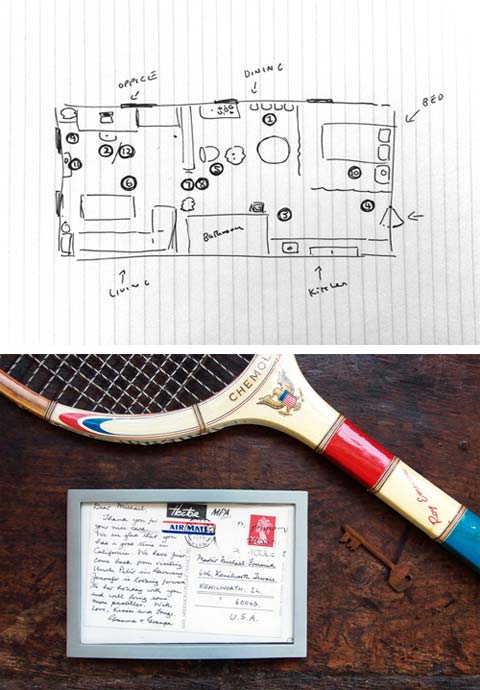 OFFICE
DINING
BED
1
9
2/12
11
5
6
7 8
10
3
4
Bathroom
LIVING
Kitchen
CHEMOLD
Roy Emerson
Dear Michael,
Thank you for
your nice card.
We are glad that you
had a good time in
California. We have just
come back from visiting
Uncle Peter in Germany.
Jennifer is looking forward
to her holiday with you
and will bring some
more pastilles. With
Love, Kisses and Hugs,
Gramma + Grampa
Hector MPA
AIR MAIL
Master Michael
646, Kenilworth Terrace
KENILWORTH, IL
60043,
U.S.A.